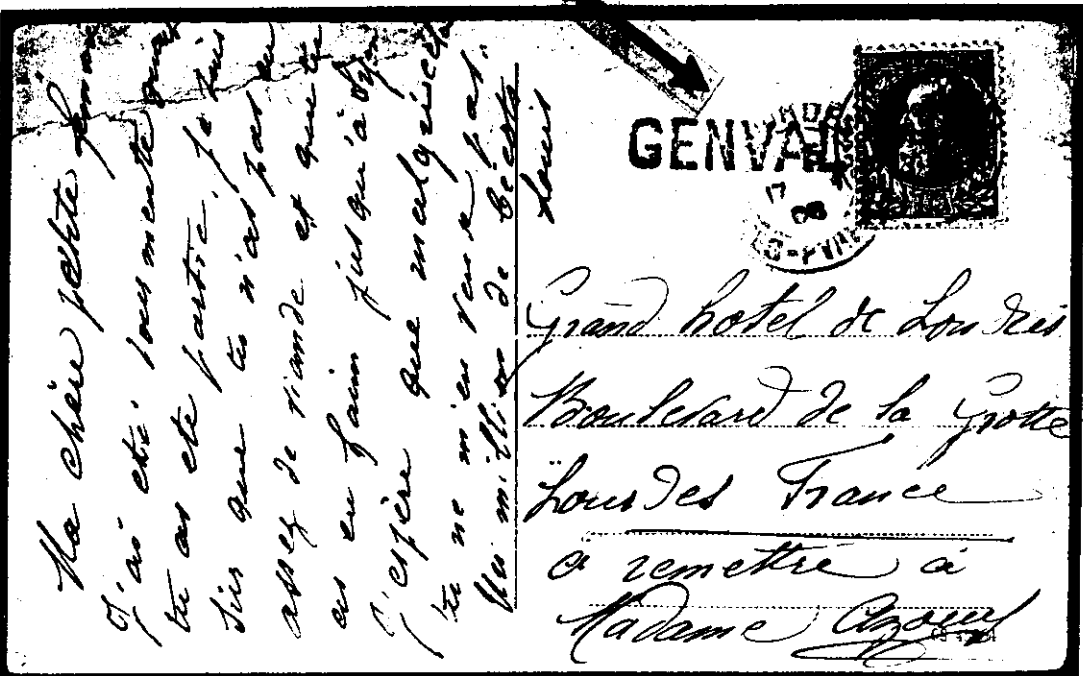 Ma chère petite femme
J'ai été tourmenté quand
tu as été partie, je suis
sûr que tu n'as pas eu
assez de viande et que tu
as eu faim jusqu'à
J'espère que malgré cela
tu ne m'en veux pas.
Un million de bécots
Louis
GENVAL
08
Grand hotel de Londres
Boulevard de la Grotte
Lourdes France
a remettre à
Madame